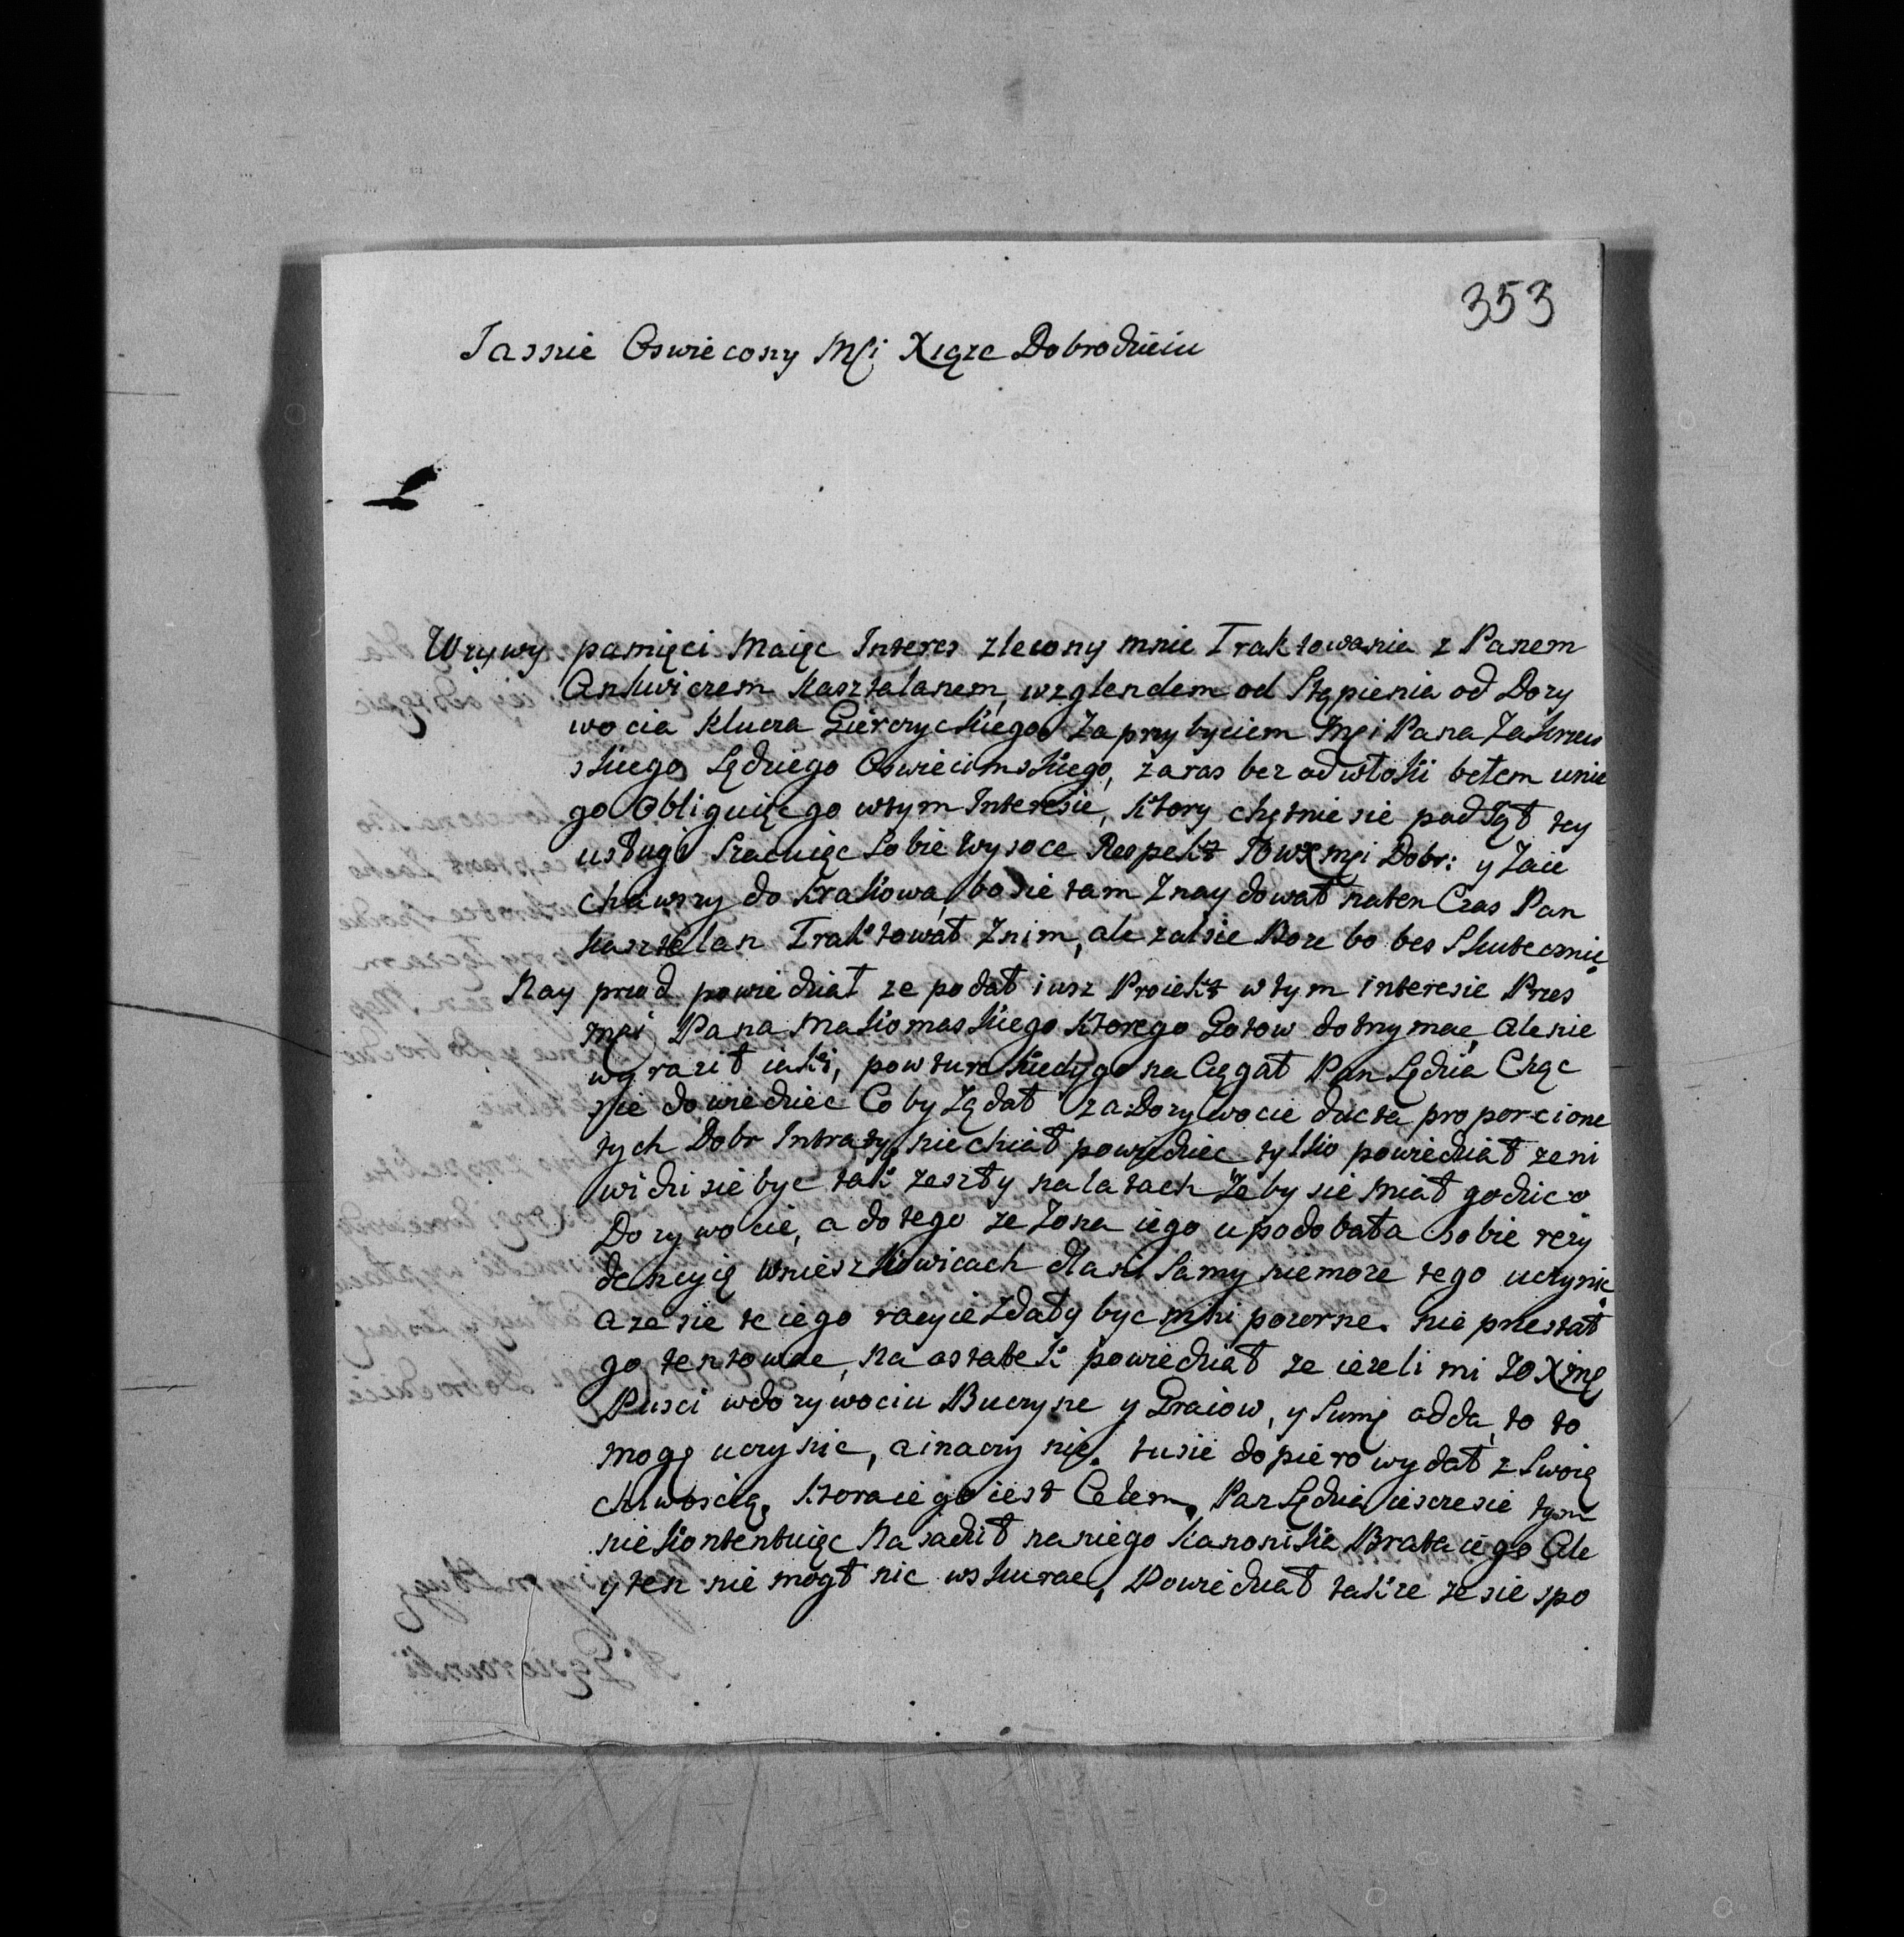 353
Jasnie Oswiecony Mći Xiąze Dobrodzieiu
Wzywy pamięci Maięc Interes zlecony mnie Traktowania z Panem
Ankwiczem Kasztalanem, wzglendem od Stąpienia od Dozy
wocia Klucza Gierczyckiego, Za przybyciem Jmći Pana Zakrzew
skiego Sędziego Oswiecimskiego, zaras bez odwłoki bełem unie
go Obliguięc go wtym Interesie, ktory chętnie sie podiął tey
usługi Szacuięc Sobie wysoce Respekt JOWXmći Dobr: y Zaie
chawszy do Krakowa, bo sie tam Znaydował naten Czas Pan
Kasztelan Traktował Znim, ale zalsie Boze bo bes Skutecznie.
Nay przod powiedział ze podał iusz Proiekt wtym interesie Przes
Jmći Pana Makomaskiego ktorego Gotow dotrzymac, Ale nie
wyraził iaki, powture kiedy go na Ciągał Pan Sędzia Chąc
sie dowiedziec Co by Ządał za Dozywocie ducta proporcione
tych Dobr Intraty, niechiał powiedziec tylko powiedział ze ni
widzi sie byc tak zeszły na latach Zeby sie miał godzic o
Dozywocie, a do tego ze Zona iego upodobała sobie rezy
dencyię wnieszkowicach dla ni Samy niemoze tego uczynic.
a ze sie te iego racyie Zdały byc mni pozorne. nie przestał
go tentowac, na ostatek powiedział ze iezeli mi JOXmę
Pusci wdozywociu Buczyne y Graiow, y Sumę odda, to to
mogę uczynic, a inaczy nie. tusie dopiero wydał z Swoię
chiwoscią, ktora iego iest Celem, Pan Sędzia ieszcze sie tym
nie kontentuięc Nasadził na niego Kanonika Brata iego Ale
y ten nie mogł nic wskurac, Powiedział takze ze sie spo